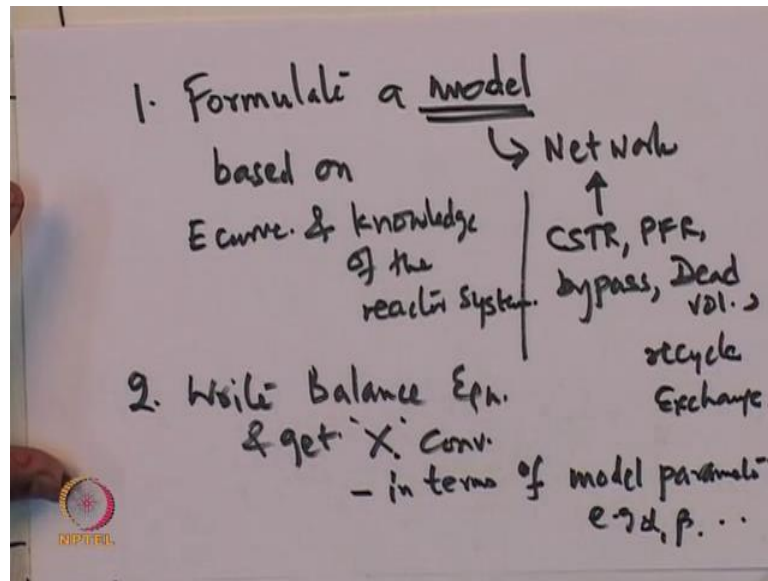 1. Formulate a model
↳ Network
based on
E curve. & knowledge
of the
reactor system.
↑
CSTR, PFR,
bypass, Dead
vol.,
recycle
Exchange
2. Write Balance Eqn.
& get 'X' Conv.
- in terms of model paramete
e.g α, β. ...
NPTEL